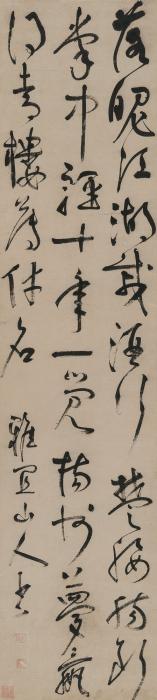 落魄江湖載酒行楚腰腸斷
掌中輕十年一覺揚州夢贏
得青樓薄倖名 雅宜山人書